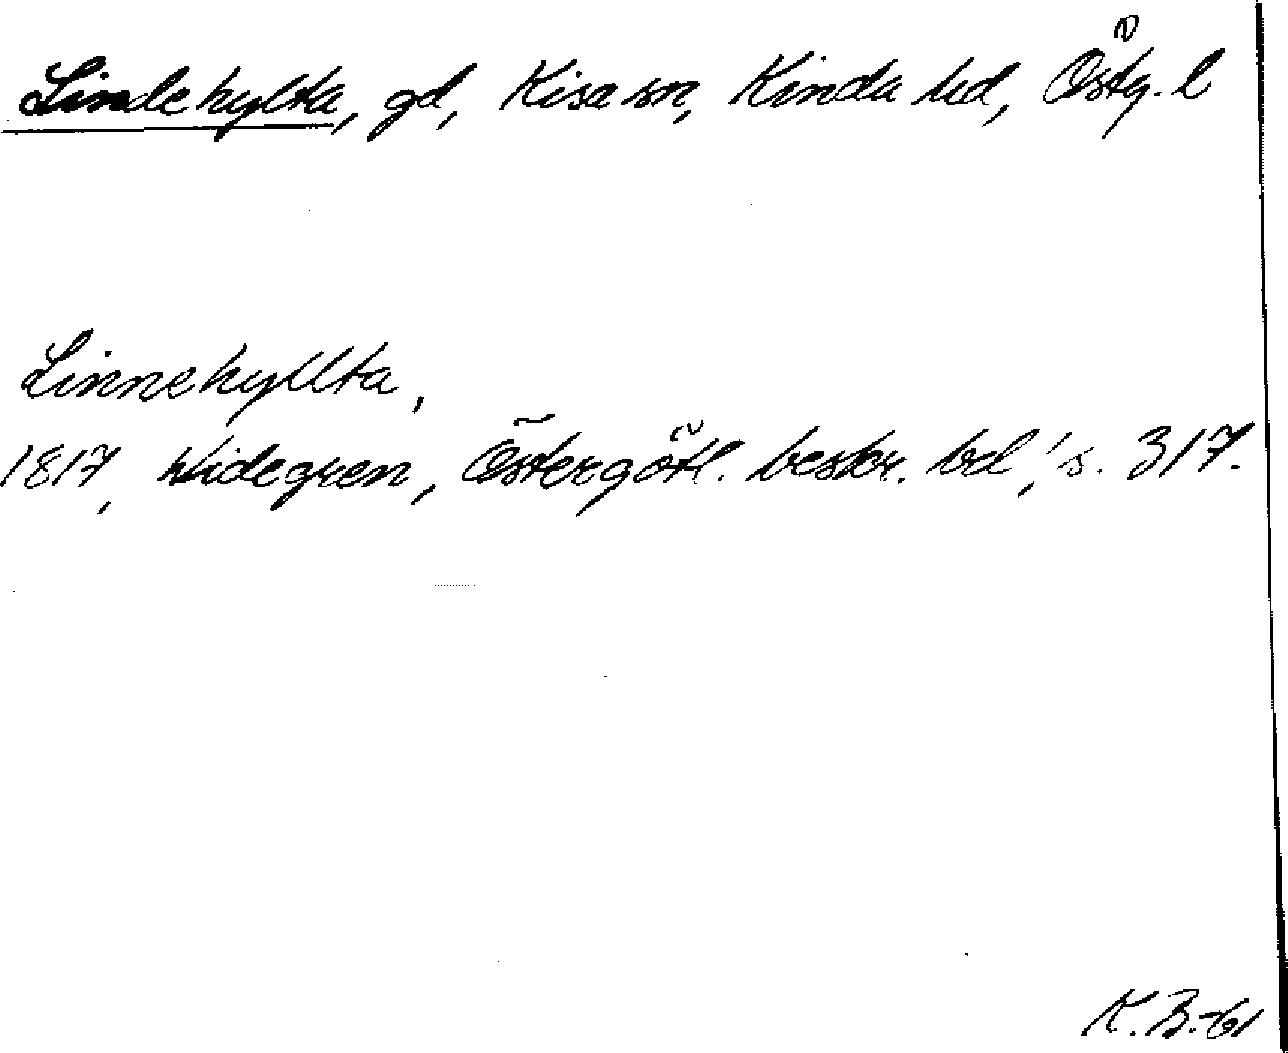 Lindehylta, gd, Kisa sn, Kinda hd, Östg. l
Linnehyllta,
1817, Widegren, Östergötl. beskr. bd, 1 s. 317.
K. B.-61